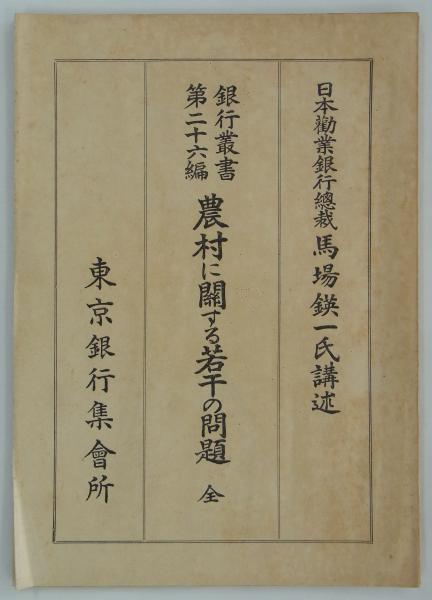 日本勸業銀行總裁 馬場鍈一氏講述
銀行叢書
第二十六編
農村に關する若干の問題 全
東京銀行集會所